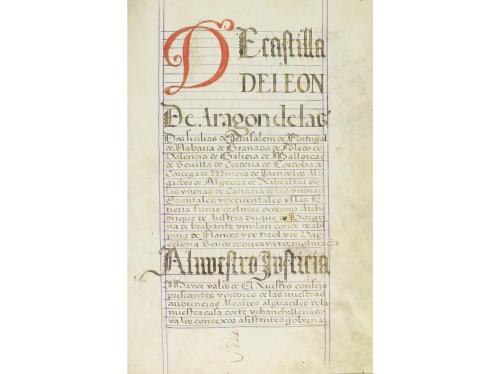 DE castilla
DE LEON
De Aragon de las
Dos sicilias de Jerusalem de Portugal
de Nabarra de Granada de Toledo de
Valencia de Galicia de Mallorcas
de Sevilla de Cerdeña de Cordoba de
Corcega de Murcia de Jaen de los Al
garbes de Algecira de Gibraltar de
las yndias de Canaria de las yndias
Orientales y occidentales yslas E
tierra firme del mar oceano Archi
duque de Austria duque de Borgoña
de brabante y milan conde de abs
purg de Flandes y de tirol y de Bar
celona Señor de vizcaya y de molina
Al nuestro Justicia
Mayor y a los de El Nuestro consejo
presidentes y oydores de las nuestras
audiencias Alcaldes alguaciles de la
nuestra casa corte y chancillerias
y a los consexos asistentes goberna